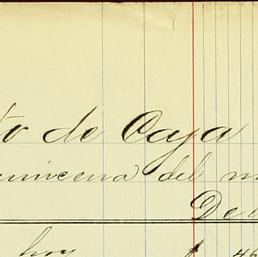 to de Caja
quincena del m
De
hoy 46